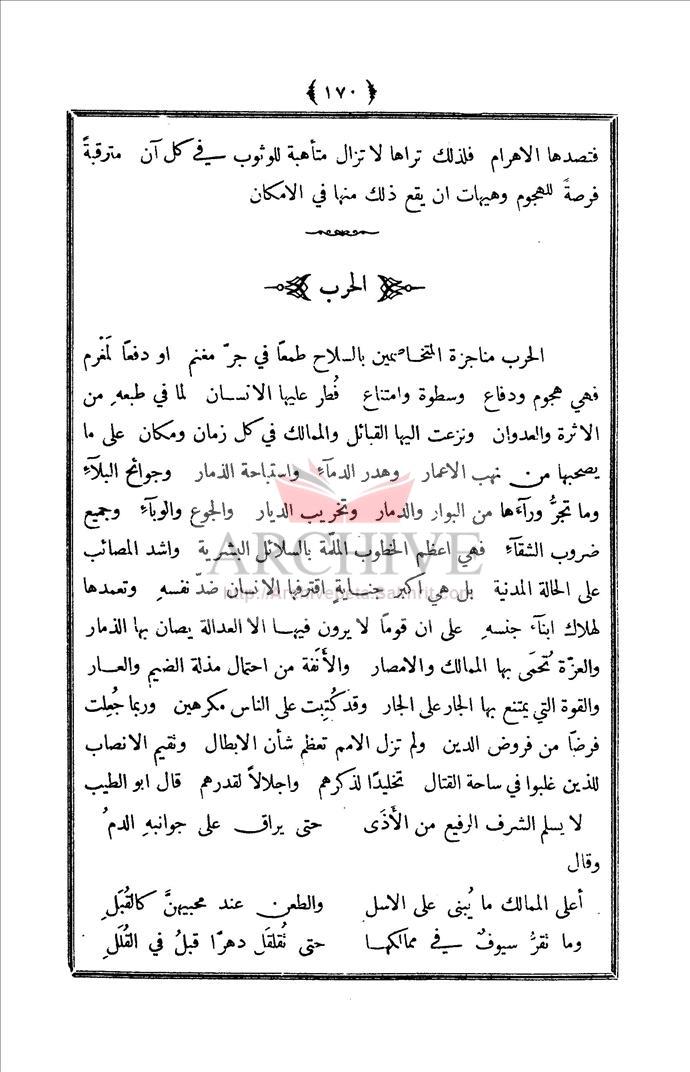 ﴿ ١٧٠ ﴾
فتصدها الاهرام فلذلك تراها لا تزال متأهبة للوثوب في كل آن مترقبةً
فرصةً للهجوم وهيهات ان يقع ذلك منها في الامكان
الحرب
الحرب مناجزة المتخاصمين بالسلاح طمعًا في جرّ مغنم او دفعًا لمَغْرم
فهي هجوم ودفاع وسطوة وامتناع فُطر عليها الانسان لما في طبعهِ من
الاثرة والعدوان ونزعت اليها القبائل والممالك في كل زمان ومكان على ما
يصحبها من نهب الاعمار وهدر الدمآءِ واستباحة الذمار وجوائح البلآءِ
وما تجرُّ ورآءَها من البوار والدمار وتخريب الديار والجوع والوبآءِ وجميع
ضروب الشقآءِ فهي اعظم الخطوب الملمّة بالسلائل البشرية واشد المصائب
على الحالة المدنية بل هي اكبر جنايةٍ اقترفها الانسان ضدّ نفسهِ وتعمدها
لهلاك ابنآء جنسهِ على ان قومًا لا يرون فيها الا العدالة يصان بها الذمار
والعزّة تُحمَى بها الممالك والامصار والأَنَفة من احتمال مذلة الضيم والعار
والقوة التي يمتنع بها الجار على الجار وقد كُتِبت على الناس مكرهين وربما جُعِلت
فرضًا من فروض الدين ولم تزل الامم تعظم شأن الابطال وتقيم الانصاب
للذين غلبوا في ساحة القتال تخليدًا لذكرهم واجلالاً لقدرهم قال ابو الطيب
لا يسلم الشرف الرفيع من الأَذَى حتى يراق على جوانبهِ الدمُ
وقال
أعلى الممالك ما يُبنى على الاسل والطعن عند محبيهنَّ كالقُبَلِ
وما تقرُّ سيوفٌ في ممالكها حتى تُقلقَل دهرًا قبلُ في القُلَلِ
ARCHIVE
http://Archivebeta.Sakhrit.com